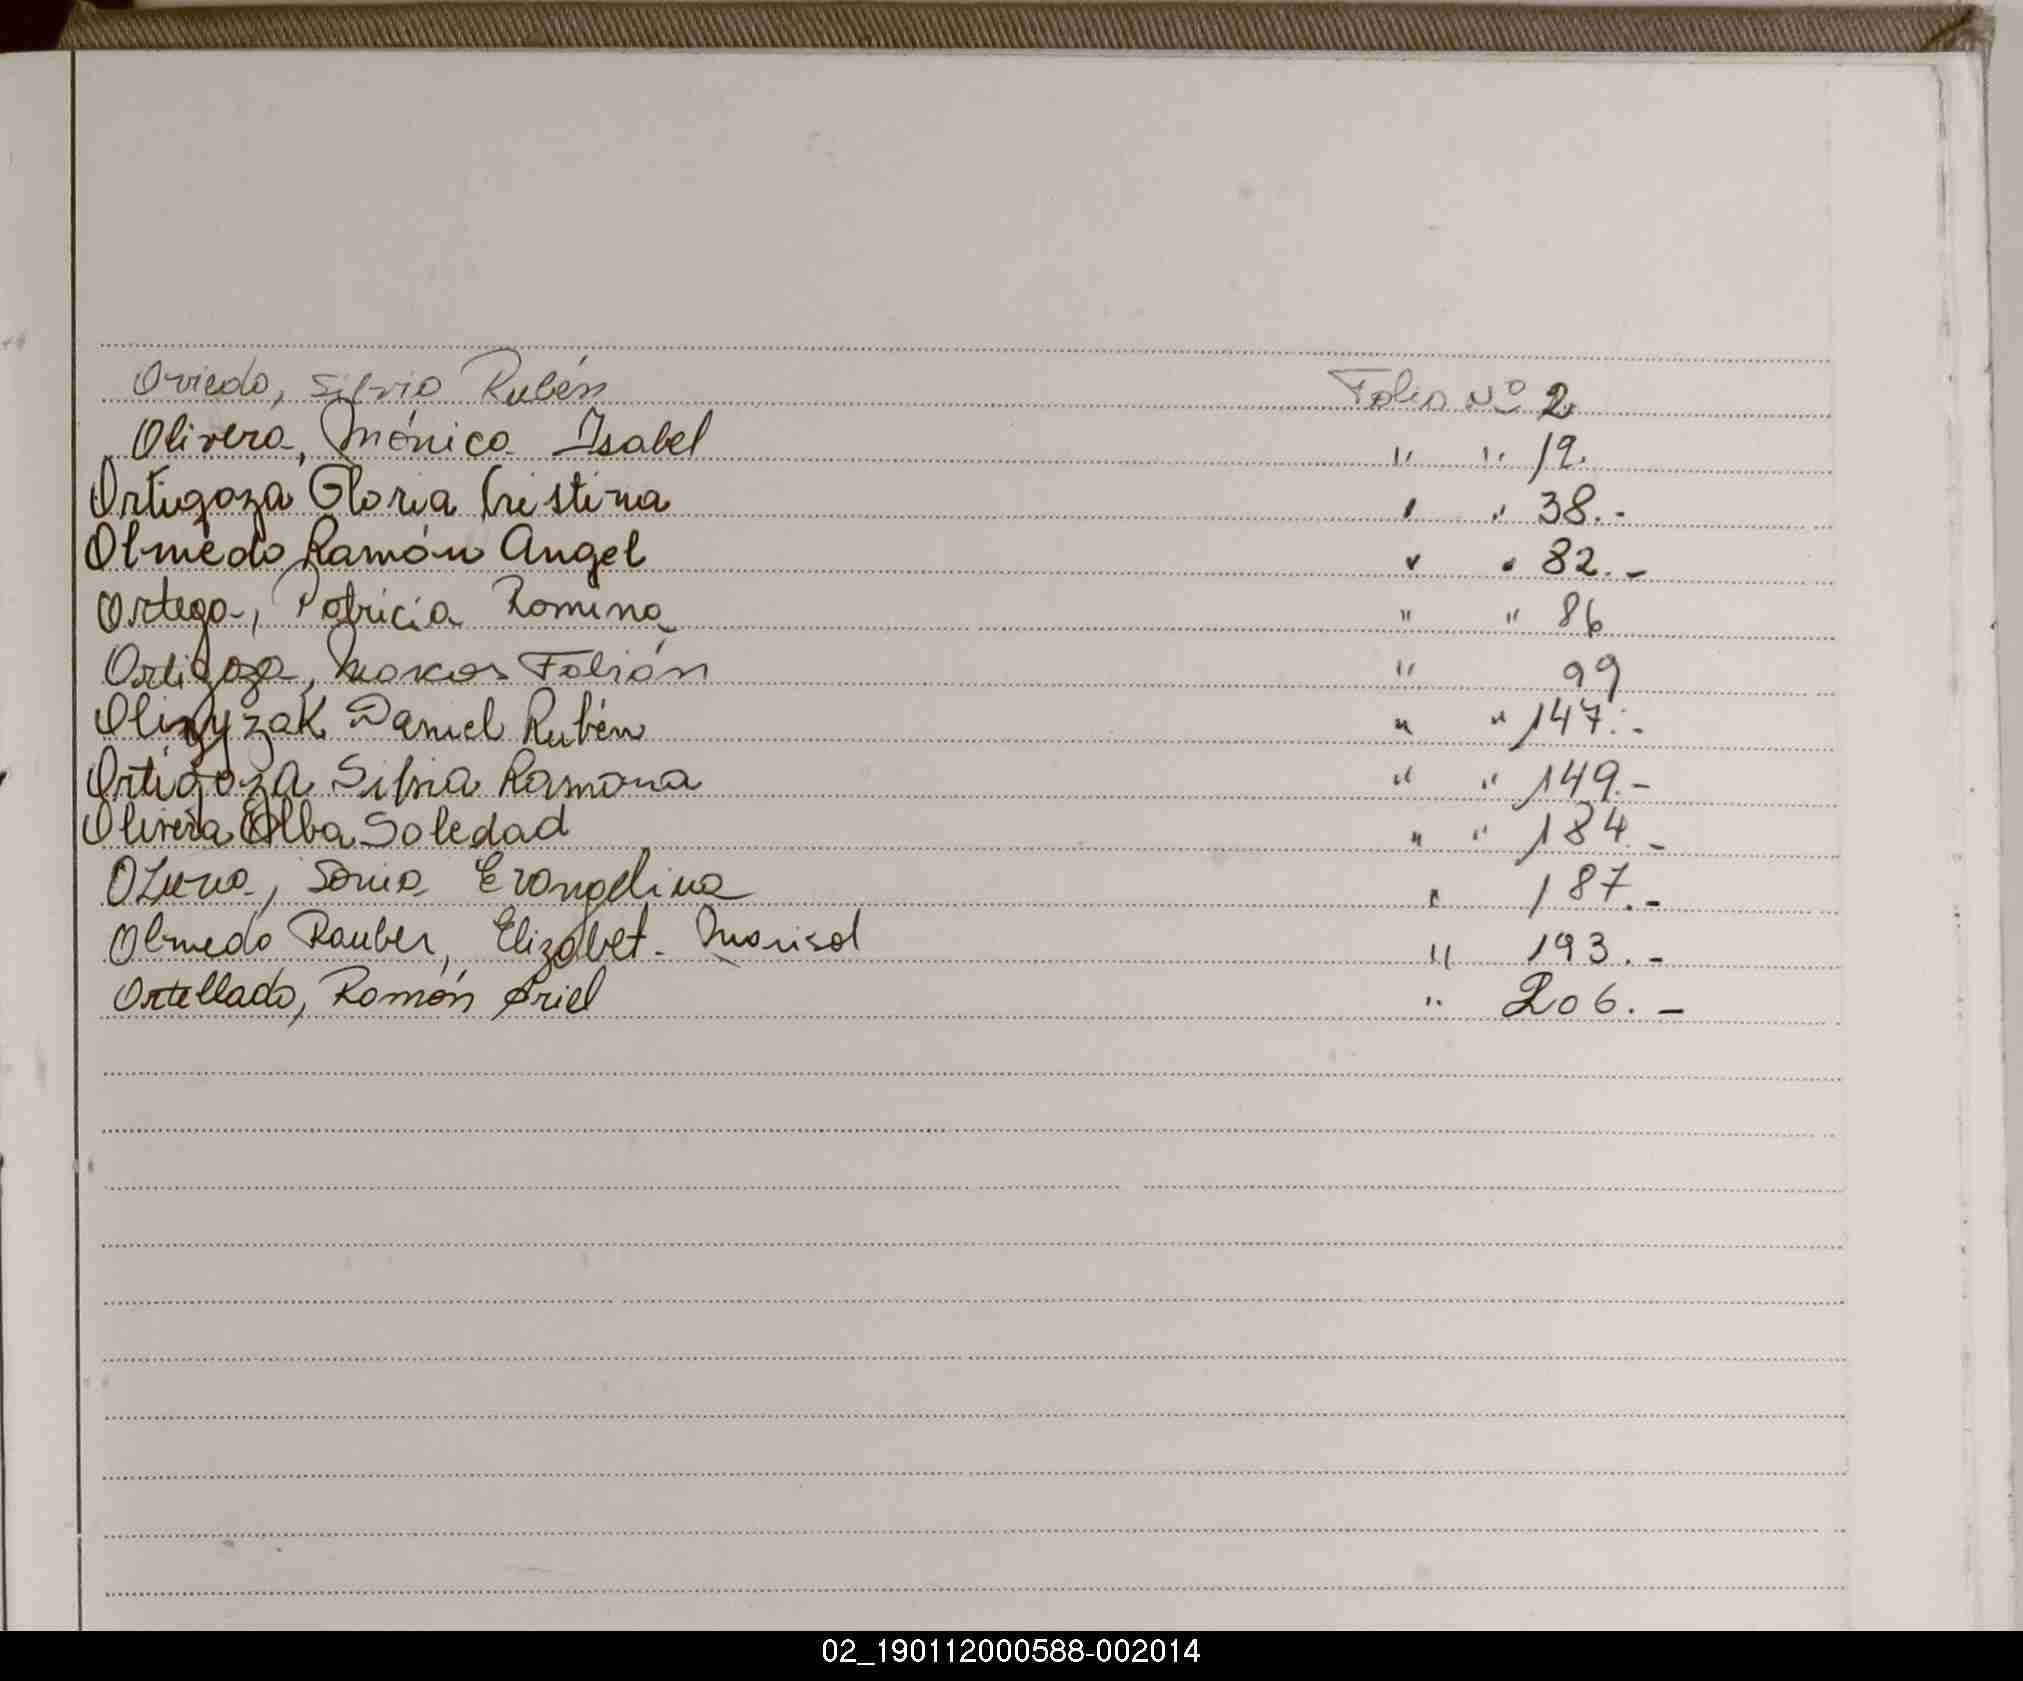 Oviedo, Silvio Rubén Folio Nº 2.
Olivera, Mónica Isabel " " 19.
Ortigoza Gloria Cristina " " 38.-
Olmedo Ramón Angel " " 82.-
Ortega, Patricia Romina " " 86
Ortigoza, Marcos Fabián " 99
Daniel Rubén " " 147.-
Ortigoza Silvia Ramona " " 149.-
Olivera Alba Soledad " " 184.-
Ozuna, Sonia Evangelina " 187.-
Olmedo Rauber, Elizabet Marisol " 193.-
Ortellado, Ramón Ariel " 206.-
02_190112000588-002014